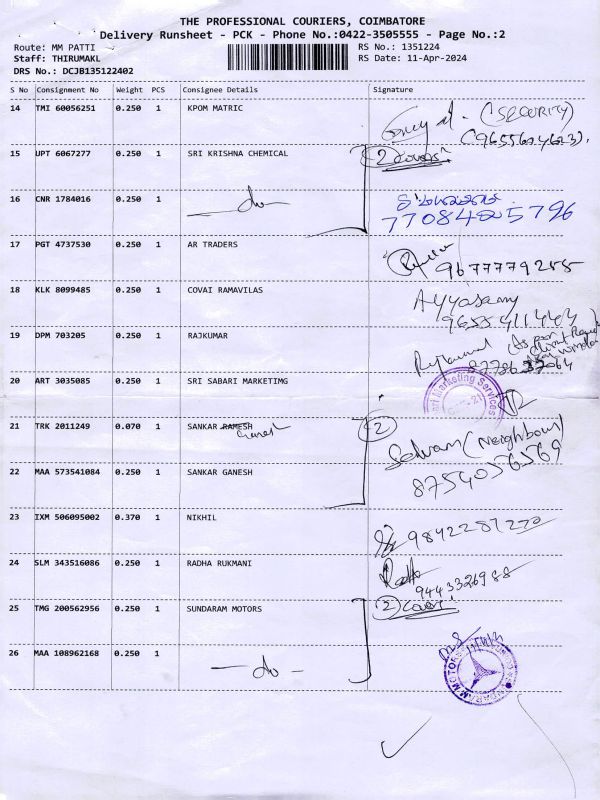 THE PROFESSIONAL COURIERS, COIMBATORE
Delivery Runsheet - PCK - Phone No.:0422-3505555 - Page No.:2
Route: MM PATTI
RS No.: 1351224
Staff: THIRUMAKL
RS Date: 11-Apr-2024
DRS No.: DCJB135122402
S No Consignment No Weight PCS Consignee Details Signature
14 TMI 60056251 0.250 1 KPOM MATRIC
(SECURITY)
15 UPT 6067277 0.250 1 SRI KRISHNA CHEMICAL
2 covers
16 CNR 1784016 0.250 1 -do-
17 PGT 4737530 0.250 1 AR TRADERS
9677779255
18 KLK 8099485 0.250 1 COVAI RAMAVILAS
Ayyasamy
9655411443
19 DPM 703205 0.250 1 RAJKUMAR
20 ART 3035085 0.250 1 SRI SABARI MARKETIMG
Marketing Services
21 TRK 2011249 0.070 1 SANKAR RAMESH Ganesh
2
Selvam (Neighbour)
8754056569
22 MAA 573541084 0.250 1 SANKAR GANESH
23 IXM 506095002 0.370 1 NIKHIL
9842287270
24 SLM 343516086 0.250 1 RADHA RUKMANI
Radha
9443326988
25 TMG 200562956 0.250 1 SUNDARAM MOTORS
2 Cover
26 MAA 108962168 0.250 1 -do-
SUNDARAM MOTORS